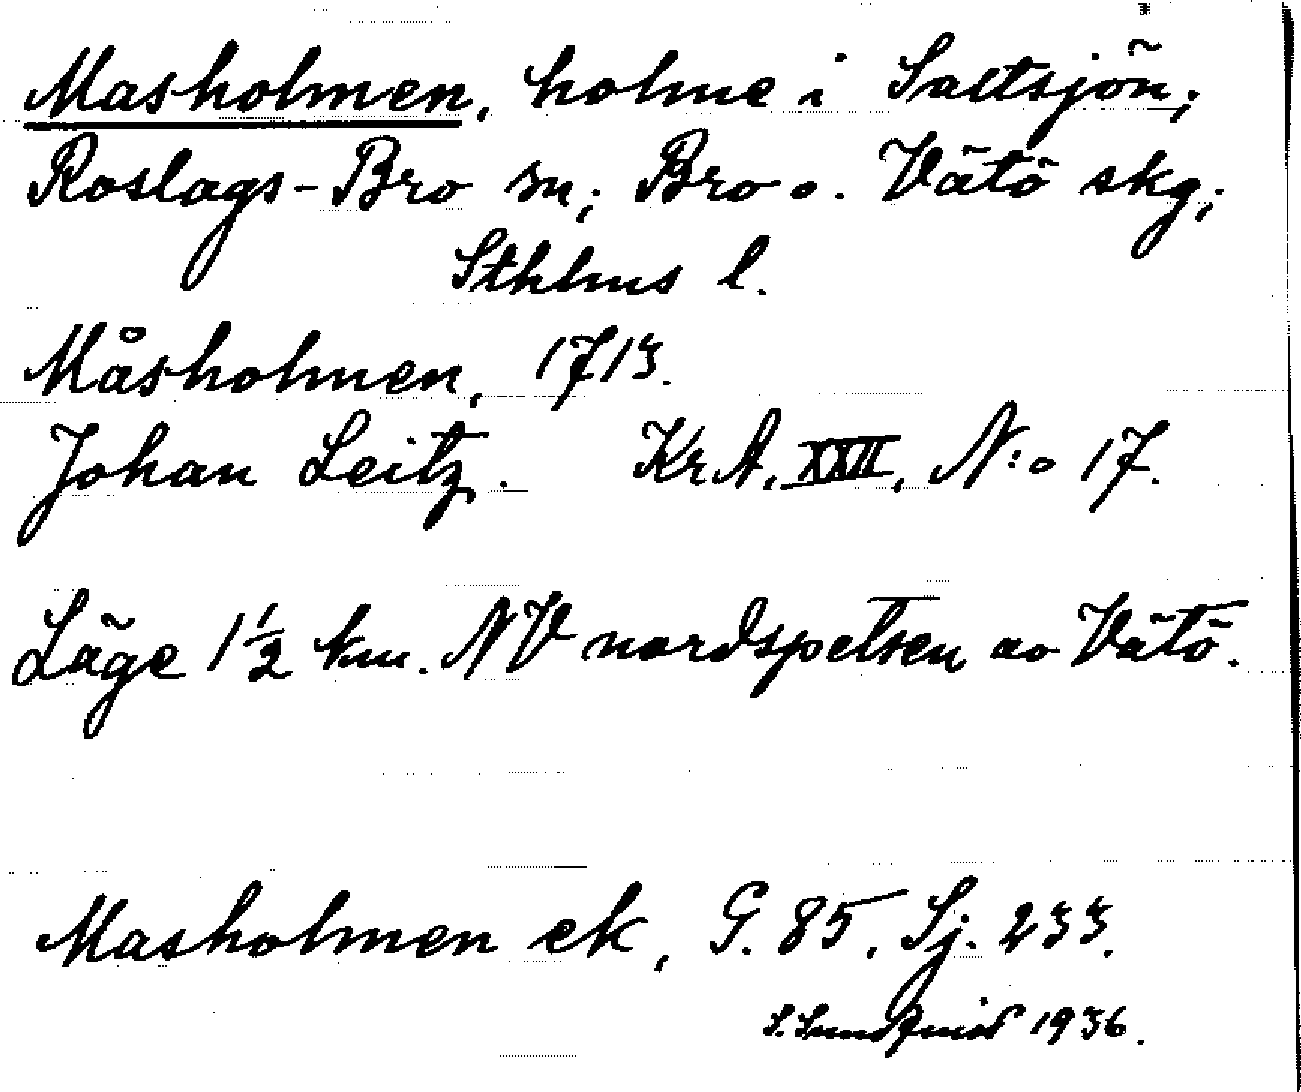 Masholmen, holme i Saltsjön;
Roslags-Bro sn; Bro o. Vätö skg;
Sthlms l.
Måsholmen, 1713.
Johan Leitz. KrA, XXII, N:o 17.
Läge 1 1/2 km. NV nordspetsen av Vätö.
Masholmen ek, G. 85, Sj. 233.
S. Sundqvist 1936.